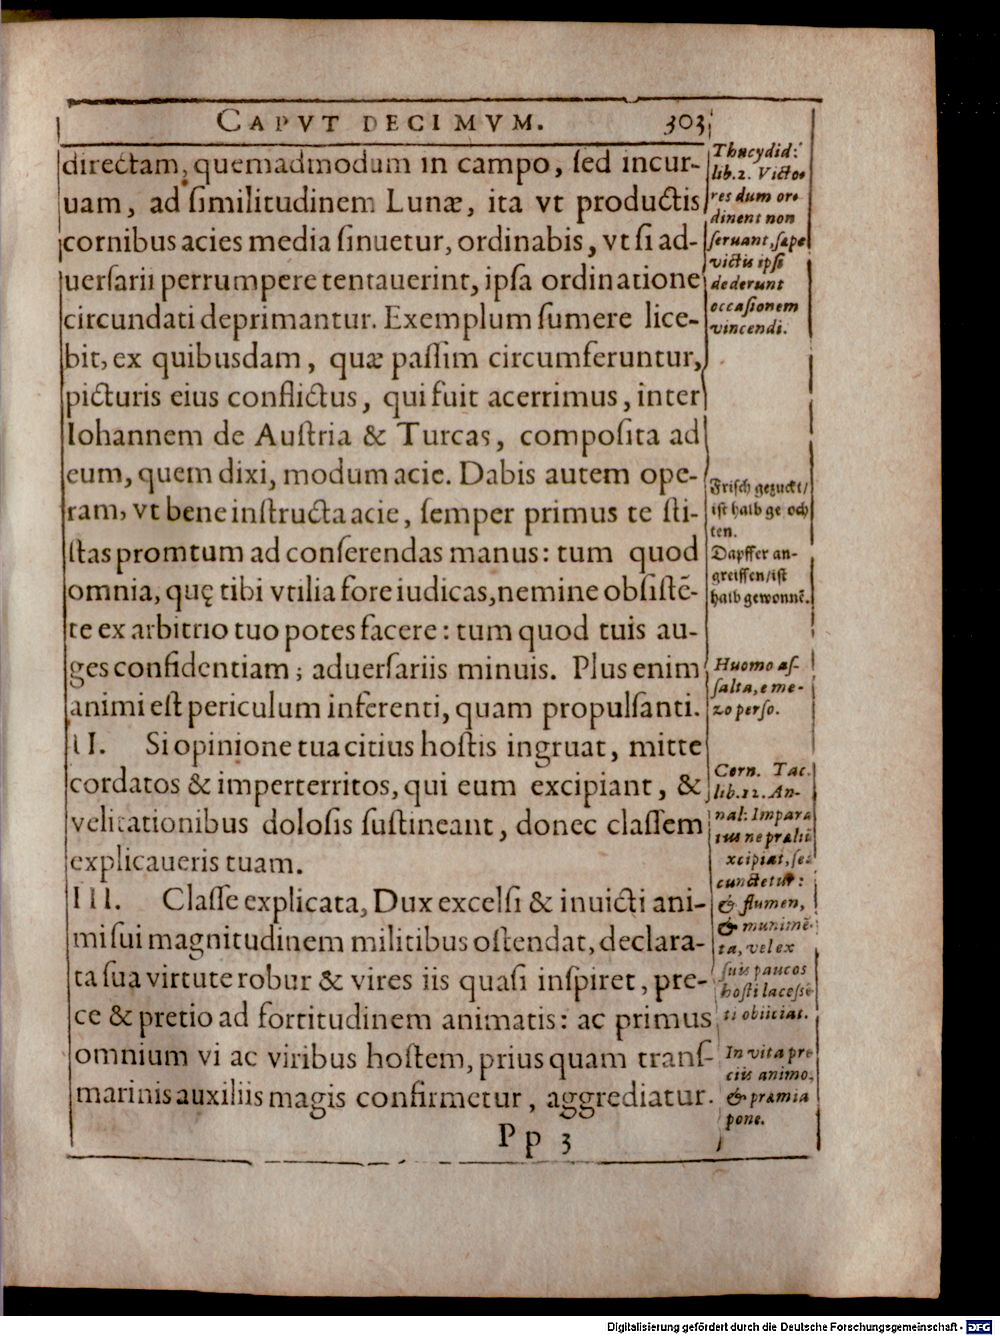 CAPVT DECIMVM. 303
directam, quemadmodum in campo, ſed incur-
uam, ad ſimilitudinem Lunæ, ita vt productis
cornibus acies media ſinuetur, ordinabis, vt ſi ad-
uerſarii perrumpere tentauerint, ipſa ordinatione
circundati deprimantur. Exemplum ſumere lice-
bit, ex quibusdam, quæ paſſim circumferuntur,
picturis eius conflictus, qui fuit acerrimus, inter
Iohannem de Auſtria & Turcas, compoſita ad
eum, quem dixi, modum acie. Dabis autem ope-
ram, vt bene inſtructa acie, ſemper primus te ſti-
ſtas promtum ad conſerendas manus: tum quod
omnia, quę tibi vtilia fore iudicas, nemine obſiſtē-
te ex arbitrio tuo potes facere: tum quod tuis au-
ges confidentiam; aduerſariis minuis. Plus enim
animi eſt periculum inferenti, quam propulſanti.
II. Si opinione tua citius hoſtis ingruat, mitte
cordatos & imperterritos, qui eum excipiant, &
velitationibus doloſis ſuſtineant, donec claſſem
explicaueris tuam.
III. Claſſe explicata, Dux excelſi & inuicti ani-
mi ſui magnitudinem militibus oſtendat, declara-
ta ſua virtute robur & vires iis quaſi inſpiret, pre-
ce & pretio ad fortitudinem animatis: ac primus
omnium vi ac viribus hoſtem, prius quam tranſ-
marinis auxiliis magis confirmetur, aggrediatur.
Pp 3
Thucydid:
lib. 2. Victo-
res dum or-
dinent non
ſeruant, ſæpe
victis ipſi
dederunt
occaſionem
vincendi.
Friſch gezuckt/
iſt halb ge och
ten.
Dapffer an-
greiffen/iſt
halb gewonnē.
Huomo aſ-
ſalta, e me-
zo perſo.
Corn. Tac.
lib. 12. An-
nal: Impara
tus ne præliū
xcipiat, ſe
cunctetur:
& flumen,
& munimē-
ta, vel ex
ſuis paucos
hoſti laceſſē
ti obiiciat.
Invita pre
ciis animo,
& præmia
pone.
Digitalisierung gefördert durch die Deutsche Forschungsgemeinschaft - DFG